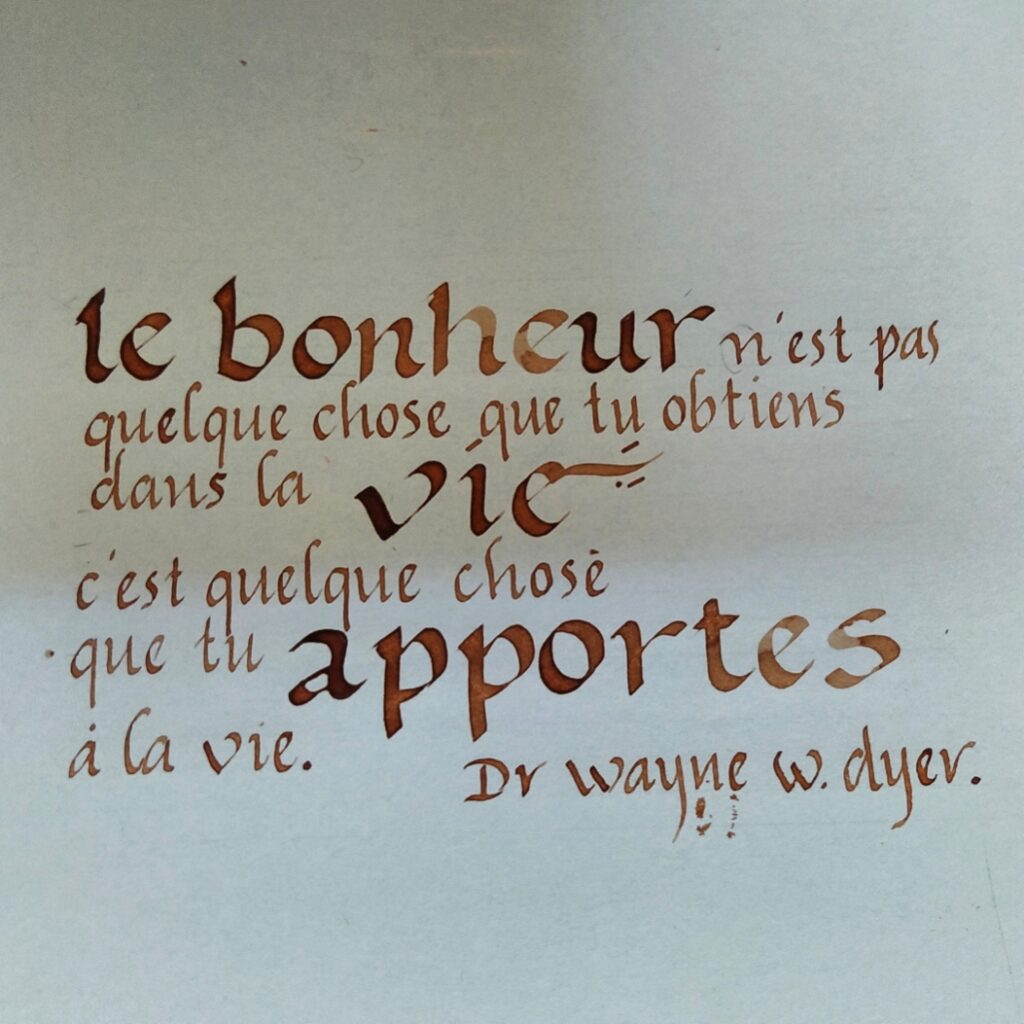 le bonheur n'est pas
quelque chose que tu obtiens
dans la vie
c'est quelque chose
que tu apportes
à la vie.
Dr wayne w. dyer.